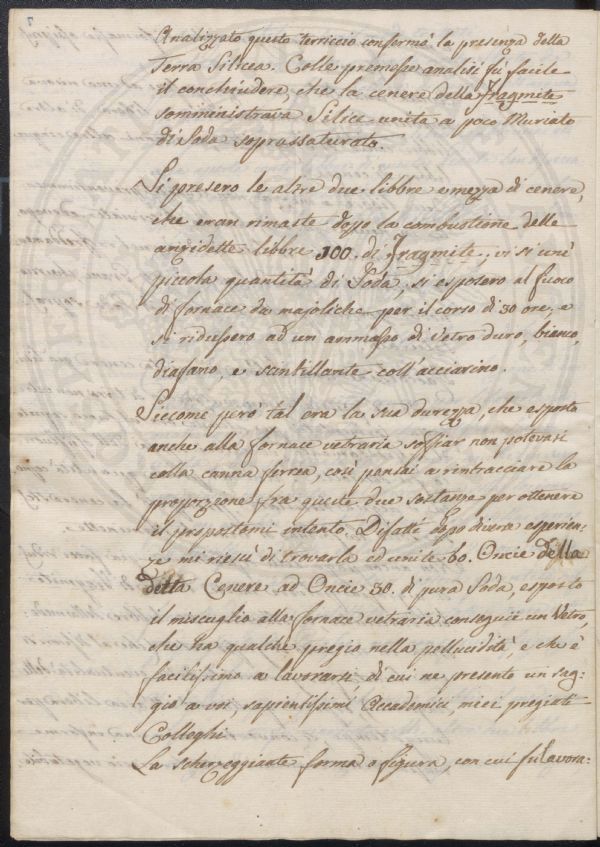 7
Analizzato questo terriccio confermò la presenza della
Terra Silicea. Colle premesse analisi fù facile
il conchiudere, che la cenere della Fragmite
somministrava Silice unita a poco Muriato
di Soda soprassaturato.
Si presero le altre due libbre e mezza di cenere,
che eran rimaste dopo la combustione delle
anzidette libbre 100. di Fragmite, vi si unì
piccola quantità di Soda, si esposero al fuoco
di fornace da majoliche per il corso di 30 ore, e
si ridussero ad un ammasso di vetro duro, bianco,
diafano, e scintillante coll'acciarino.
Siccome però tal era la sua durezza, che esposto
anche alla fornace vetraria soffiar non potevasi
colla canna ferrea, così pensai a rintracciare la
proporzione fra queste due sostanze per ottenere
il propostomi intento. Difatti dopo diverse esperien=
ze mi riescì di trovarla ed unite 60. Oncie della
detta Cenere ad Oncie 30. di pura Soda, esposto
il miscuglio alla fornace vetraria conseguii un Vetro,
che ha qualche pregio nella pellucidità, e che è
facilissimo a lavorarsi, di cui ne presento un sag=
gio a voi, sapientissimi Accademici, miei pregiati
Colleghi.
La scherzeggiante forma o figura, con cui fu lavora=